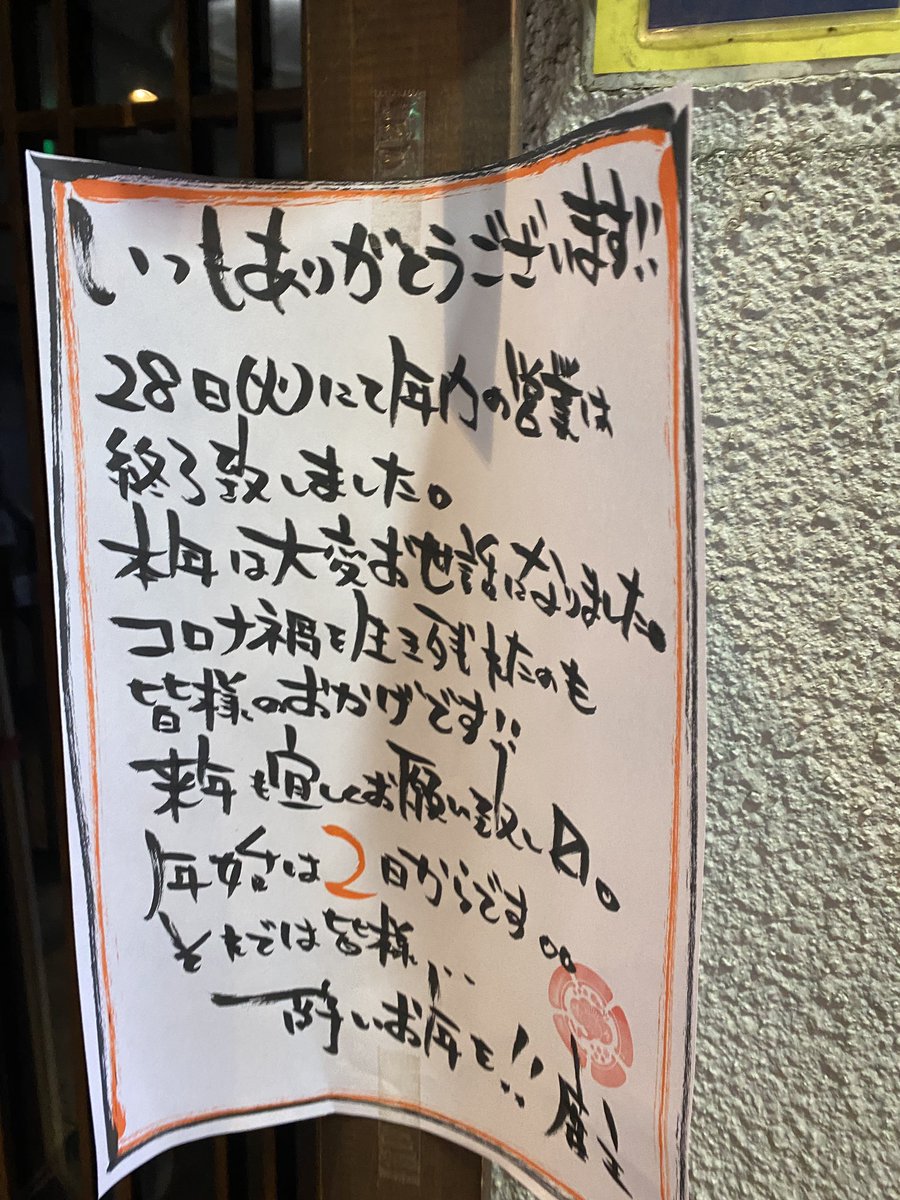 いつもありがとうございます!!
28日(火)にて年内の営業は
終了致しました。
本年は大変お世話になりました。
コロナ禍を生き残れたのも
皆様のおかげです!!
来年も宜しくお願い致し〼。
年始は2日からです。
それでは皆様…
酔いお年を!!
店主